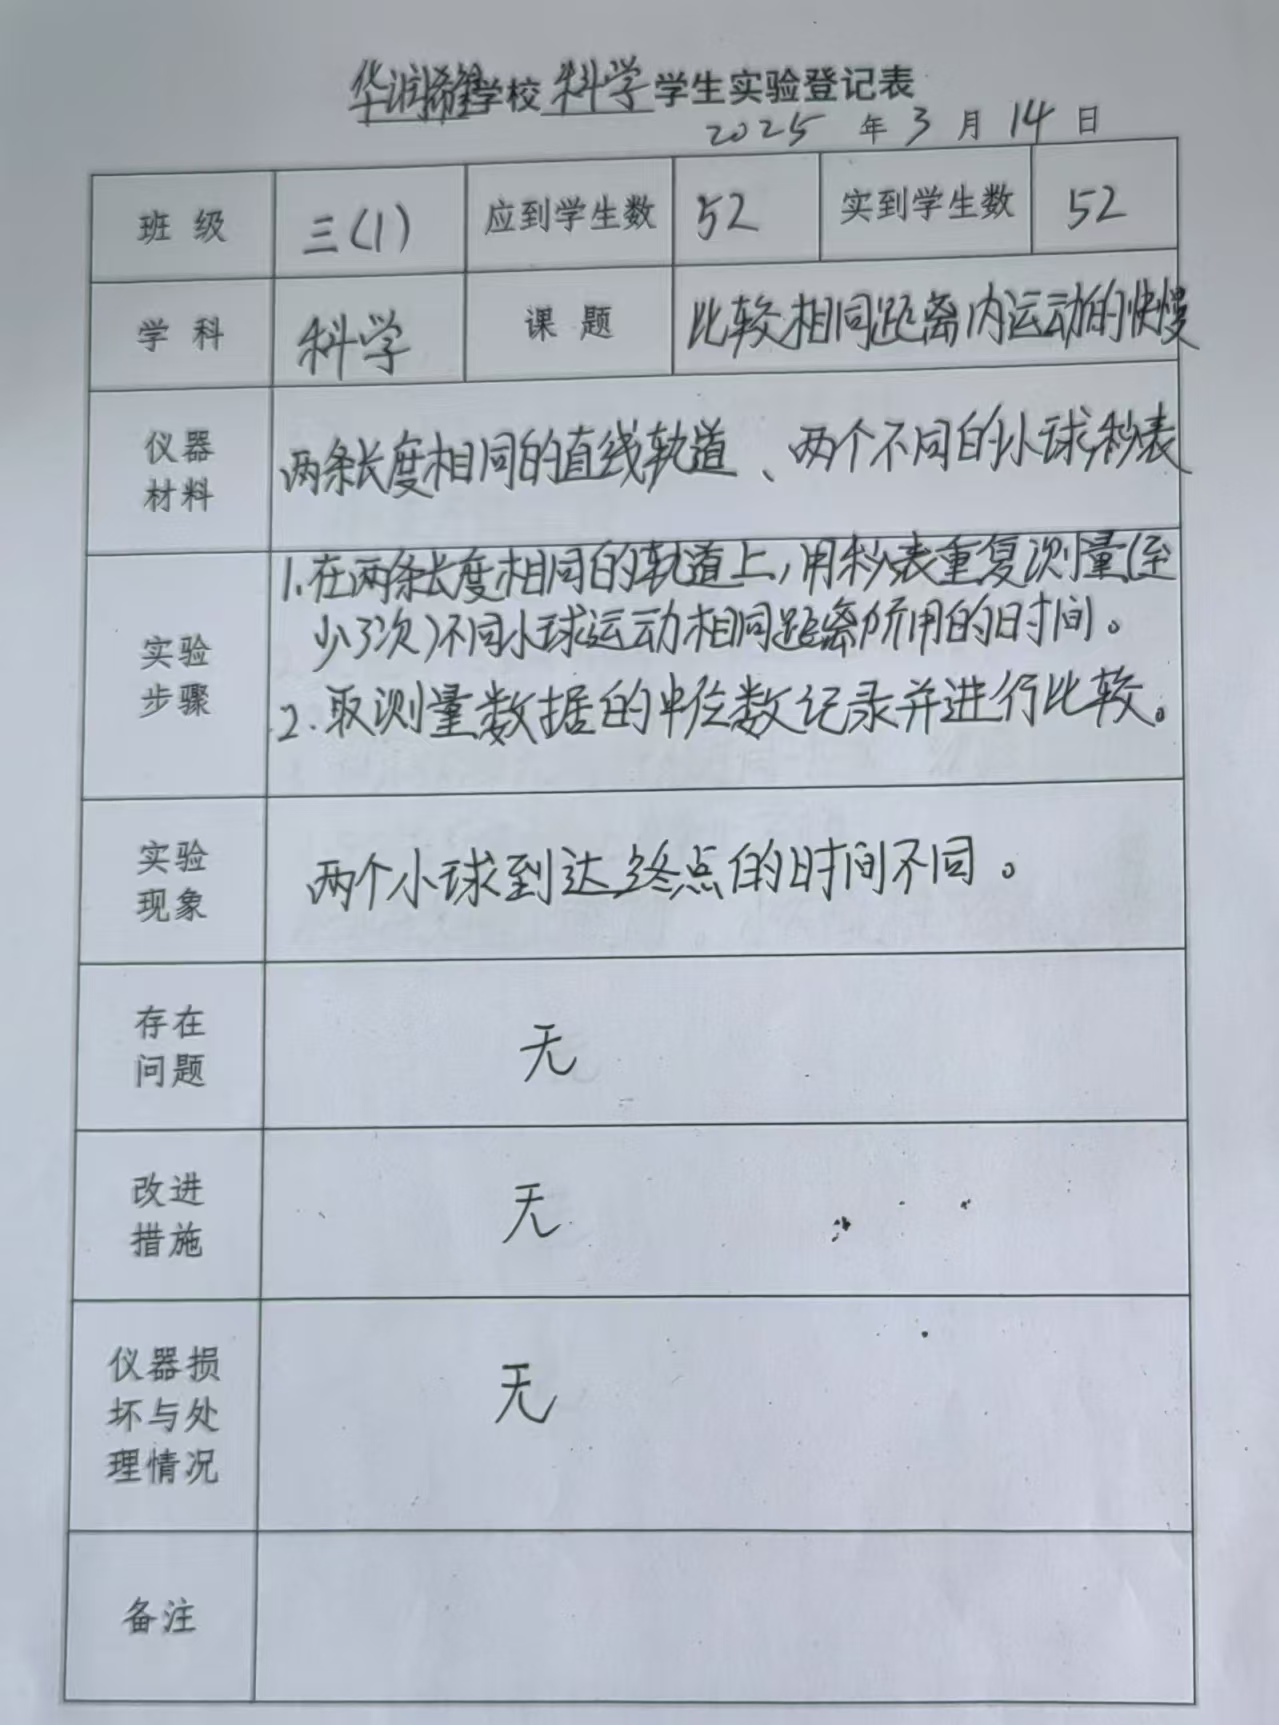 华润希望学校 科学 学生实验登记表
2025 年 3 月 14 日
班 级 三(1) 应到学生数 52 实到学生数 52
学 科 科学 课 题 比较相同距离内运动的快慢
仪器
材料
两条长度相同的直线轨道、两个不同的小球,秒表
实验
步骤
1.在两条长度相同的轨道上,用秒表重复测量(至
少3次)不同小球运动相同距离所用的时间。
2.取测量数据的中位数记录并进行比较。
实验
现象
两个小球到达终点的时间不同。
存在
问题
无
改进
措施
无
仪器损
坏与处
理情况
无
备注